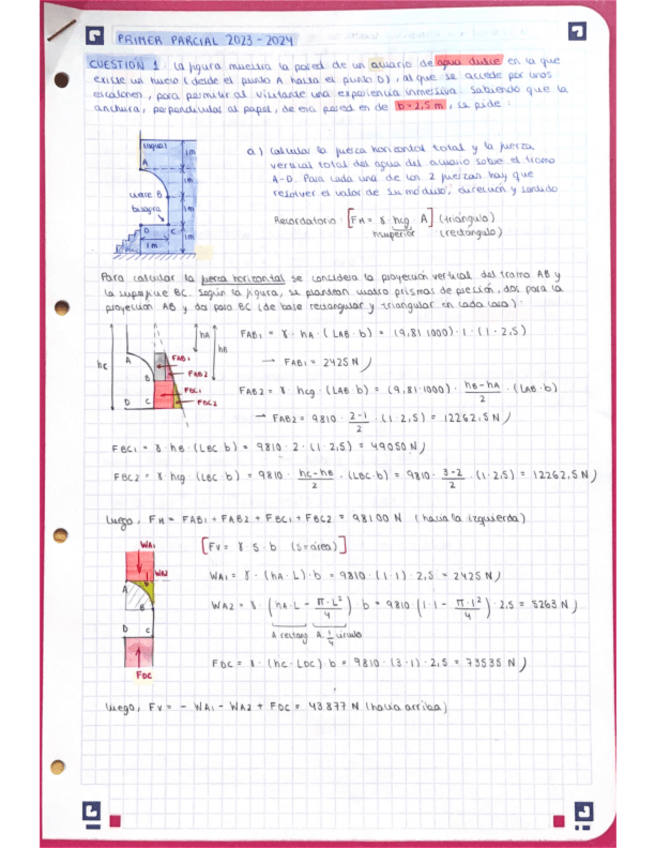 PRIMER PARCIAL 2023 - 2024
CUESTIÓN 1: La figura muestra la pared de un acuario de agua dulce en la que
existe un hueco (desde el punto A hasta el punto D), al que se accede por unos
escalones, para permitir al visitante una experiencia inmersiva. Sabiendo que la
anchura, perpendicular al papel, de esa pared es de b = 2,5 m, se pide:
a) Calcular la fuerza horizontal total y la fuerza
vertical total del agua del acuario sobre el tramo
A-D. Para cada una de las 2 fuerzas hay que
resolver el valor de su módulo, dirección y sentido
Recordatorio: [FH = γ · hcg · A] (triángulo)
hsuperior (rectángulo)
(agua)
A
1m
1m
B
1m
D
C
1m
1m
Para calcular la fuerza horizontal se considera la proyección vertical del tramo AB y
la superficie BC. Según la figura, se plantean cuatro prismas de presión, dos para la
proyección AB y dos para BC (de base rectangular y triangular en cada caso):
hC
A
B
D C
hA
hB
FAB1
FAB2
FBC1
FBC2
FAB1 = γ · hA · (LAB · b) = (9,81·1000) · 1 · (1 · 2,5)
→ FAB1 = 2425 N)
FAB2 = γ · hcg · (LAB · b) = (9,81·1000) · hB-hA/2 · (LAB·b)
→ FAB2 = 9810 · 2-1/2 · (1·2,5) = 12262,5 N)
FBC1 = γ · hB · (LBC·b) = 9810 · 2 · (1·2,5) = 49050 N)
FBC2 = γ · hcg · (LBC·b) = 9810 · hC-hB/2 · (LBC·b) = 9810 · 3-2/2 · (1·2,5) = 12262,5 N)
Luego, FH = FAB1 + FAB2 + FBC1 + FBC2 = 98100 N (hacia la izquierda)
WA1
A
B
D
C
FDC
[FV = γ · S · b (S=área)]
WA1 = γ · (hA · L) · b = 9810 · (1·1) · 2,5 = 2425 N)
WA2 = γ · (hA·L - π·L²/4) · b = 9810 · (1·1 - π·1²/4) · 2,5 = 5263 N)
A rectáng A. 1/4 círculo
FDC = γ · (hC · LDC) · b = 9810 · (3·1) · 2,5 = 73535 N)
Luego, FV = - WA1 - WA2 + FDC = 43877 N (hacia arriba)